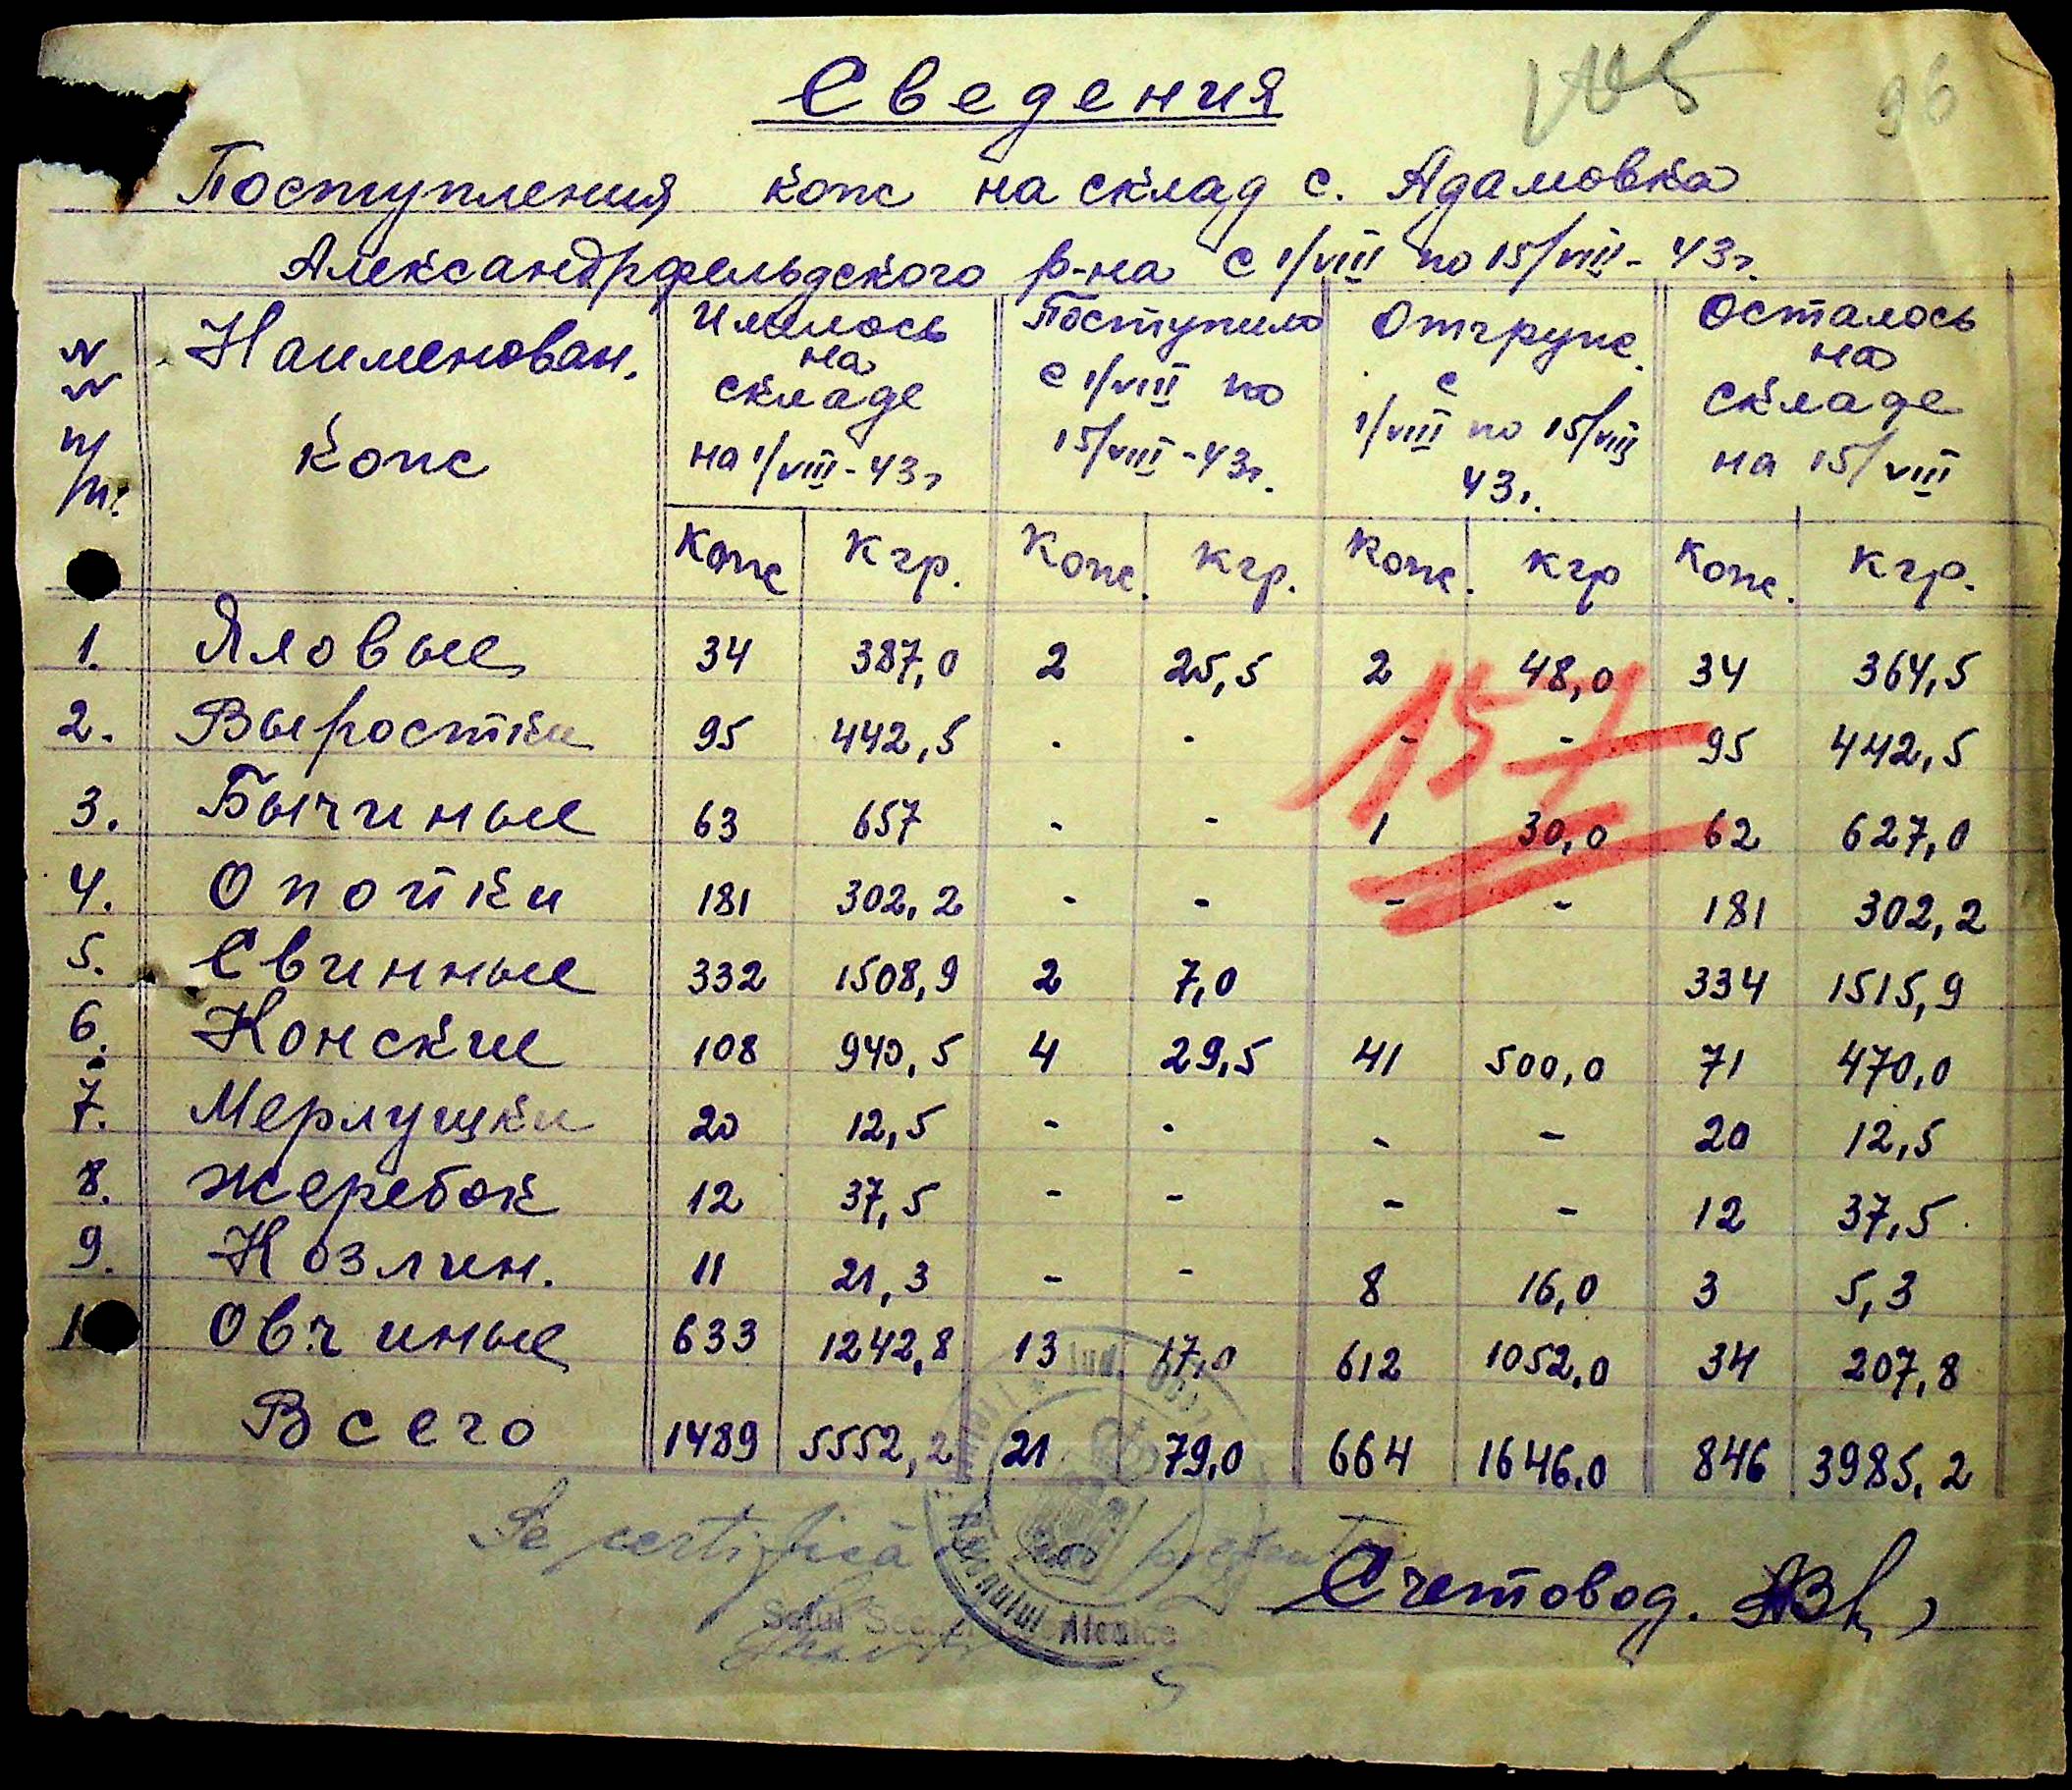 Сведения
96
Поступления кож на склад с. Адамовка
Александрфельдского р-на с 1/VIII по 15/VIII - 43г.
N N п/п. Наименован. кож Имелось на складе на 1/VIII - 43г Поступило с 1/VIII по 15/VIII - 43г. Отгруж. с 1/VIII по 15/VIII 43г. Осталось на складе на 15/VIII
Кож Кгр. Кож. Кгр. Кож. Кгр Кож. Кгр.
1. Яловые 34 387,0 2 25,5 2 48,0 34 364,5
157
2. Выростки 95 442,5 - - - - 95 442,5
3. Бычиные 63 657 - - 1 30,0 62 627,0
4. Опойки 181 302,2 - - - - 181 302,2
5. Свинные 332 1508,9 2 7,0 334 1515,9
6. Конские 108 940,5 4 29,5 41 500,0 71 470,0
7. Мерлушки 20 12,5 - - - - 20 12,5
8. Жеребок 12 37,5 - - - - 12 37,5
9. Козлин. 11 21,3 - - 8 16,0 3 5,3
1 Овчиные 633 1242,8 13 17,0 612 1052,0 34 207,8
Всего 1489 5552,2 21 79,0 664 1646,0 846 3985,2
Se certifică
Счетовод.